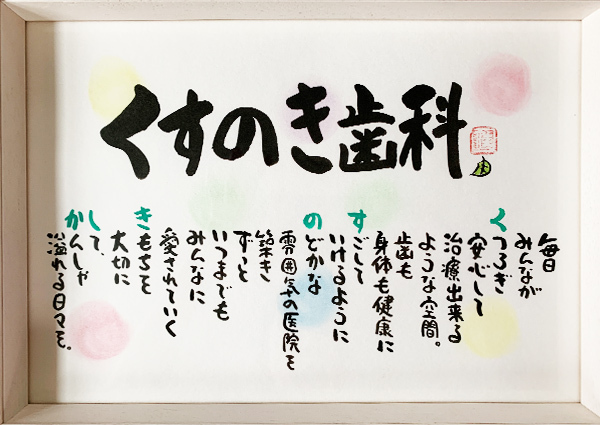 くすのき歯科
毎日
みんなが
くつろぎ
安心して
治療出来る
ような空間。
歯も
身体も健康に
すごして
いけるように
のどかな
雰囲気の医院を
築き
ずっと
いつまでも
みんなに
愛されていく
きもちを
大切に
して、
かんしゃ
溢れる日々を。